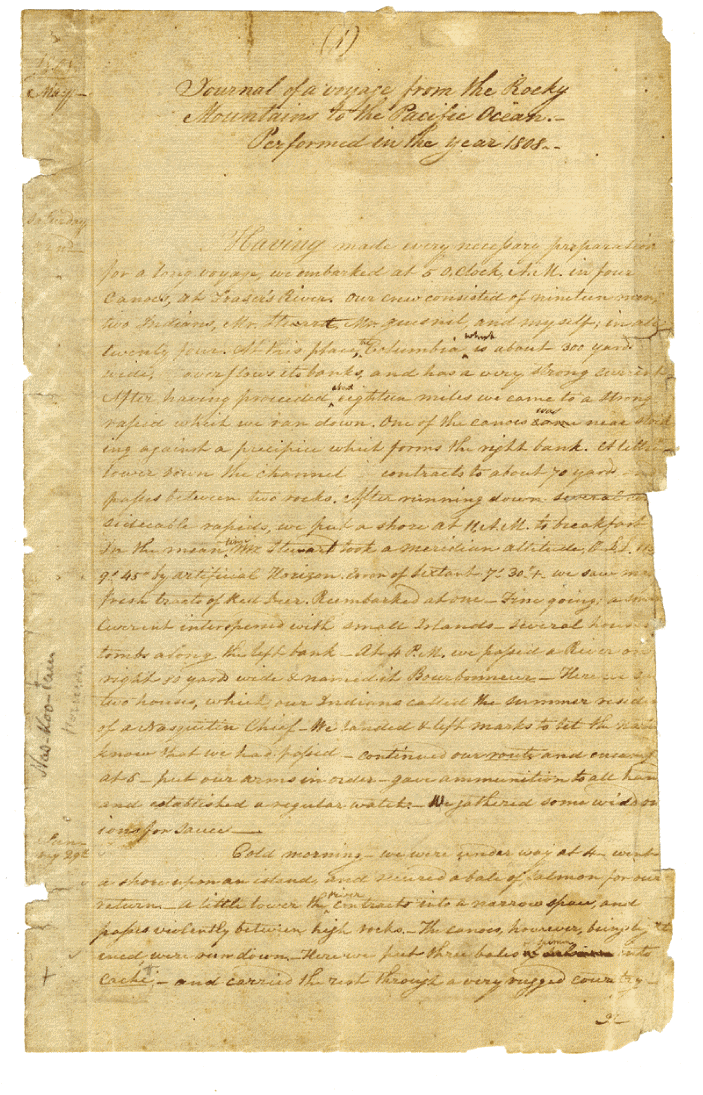 (1)
May
Journal of a voyage from the Rocky
Mountains to the Pacific Ocean.-
Performed in the year 1808.-
Saturday
Having made every necessary preparation
for a long voyage, we embarked at 5 O.Clock, A.M. in four
Canoes, at Fraser's River. Our crew consisted of nineteen men,
two Indians, Mr. Stuart, Mr. Quesnil, and myself; in all
twenty four. At this place, the Columbia, which is about 300 yards
wide, overflows its banks, and has a very strong current
After having proceeded about eighteen miles we came to a strong
rapid which we ran down. One of the canoes came was near strik
ing against a precipice which forms the right bank. A little
lower down the channel contracts to about 70 yards and
passes between two rocks. After running down several con
siderable rapids, we put a shore at 11 A.M. to breakfast
In the mean time Mr. Stewart took a meridian altitude, O.L.L.
9° 45° by artificial Horizon. error of Sextant 7' 30" + we saw
fresh tracts of Red Deer. Reembarked at one - Fine going; a
Current interspersed with small Islands - Several houses
tombs along the left bank - At 4 P.M. we passed a River on
right 50 yards wide & named it Bourbonneur - Here we
two houses, which our Indians called the summer resid
of a Nasquitin Chief - We landed & left marks to let the
know that we had passed - continued our route and encamp
at 6 - put our arms in order - gave ammunition to all han
and established a regular watch: - We gathered some wild on
ions for sauce -
Nas-Koo-tain
Sun-
ay 29th
Cold morning - we were under way at 4 - went
a shore upon an island, and secured a bale of salmon for our
return - a little lower the river contracts into a narrow space, and
passes violently between high rocks - The canoes, however, being
ened were run down. Here we put three bales into
cache, - and carried the rest through a very rugged country -